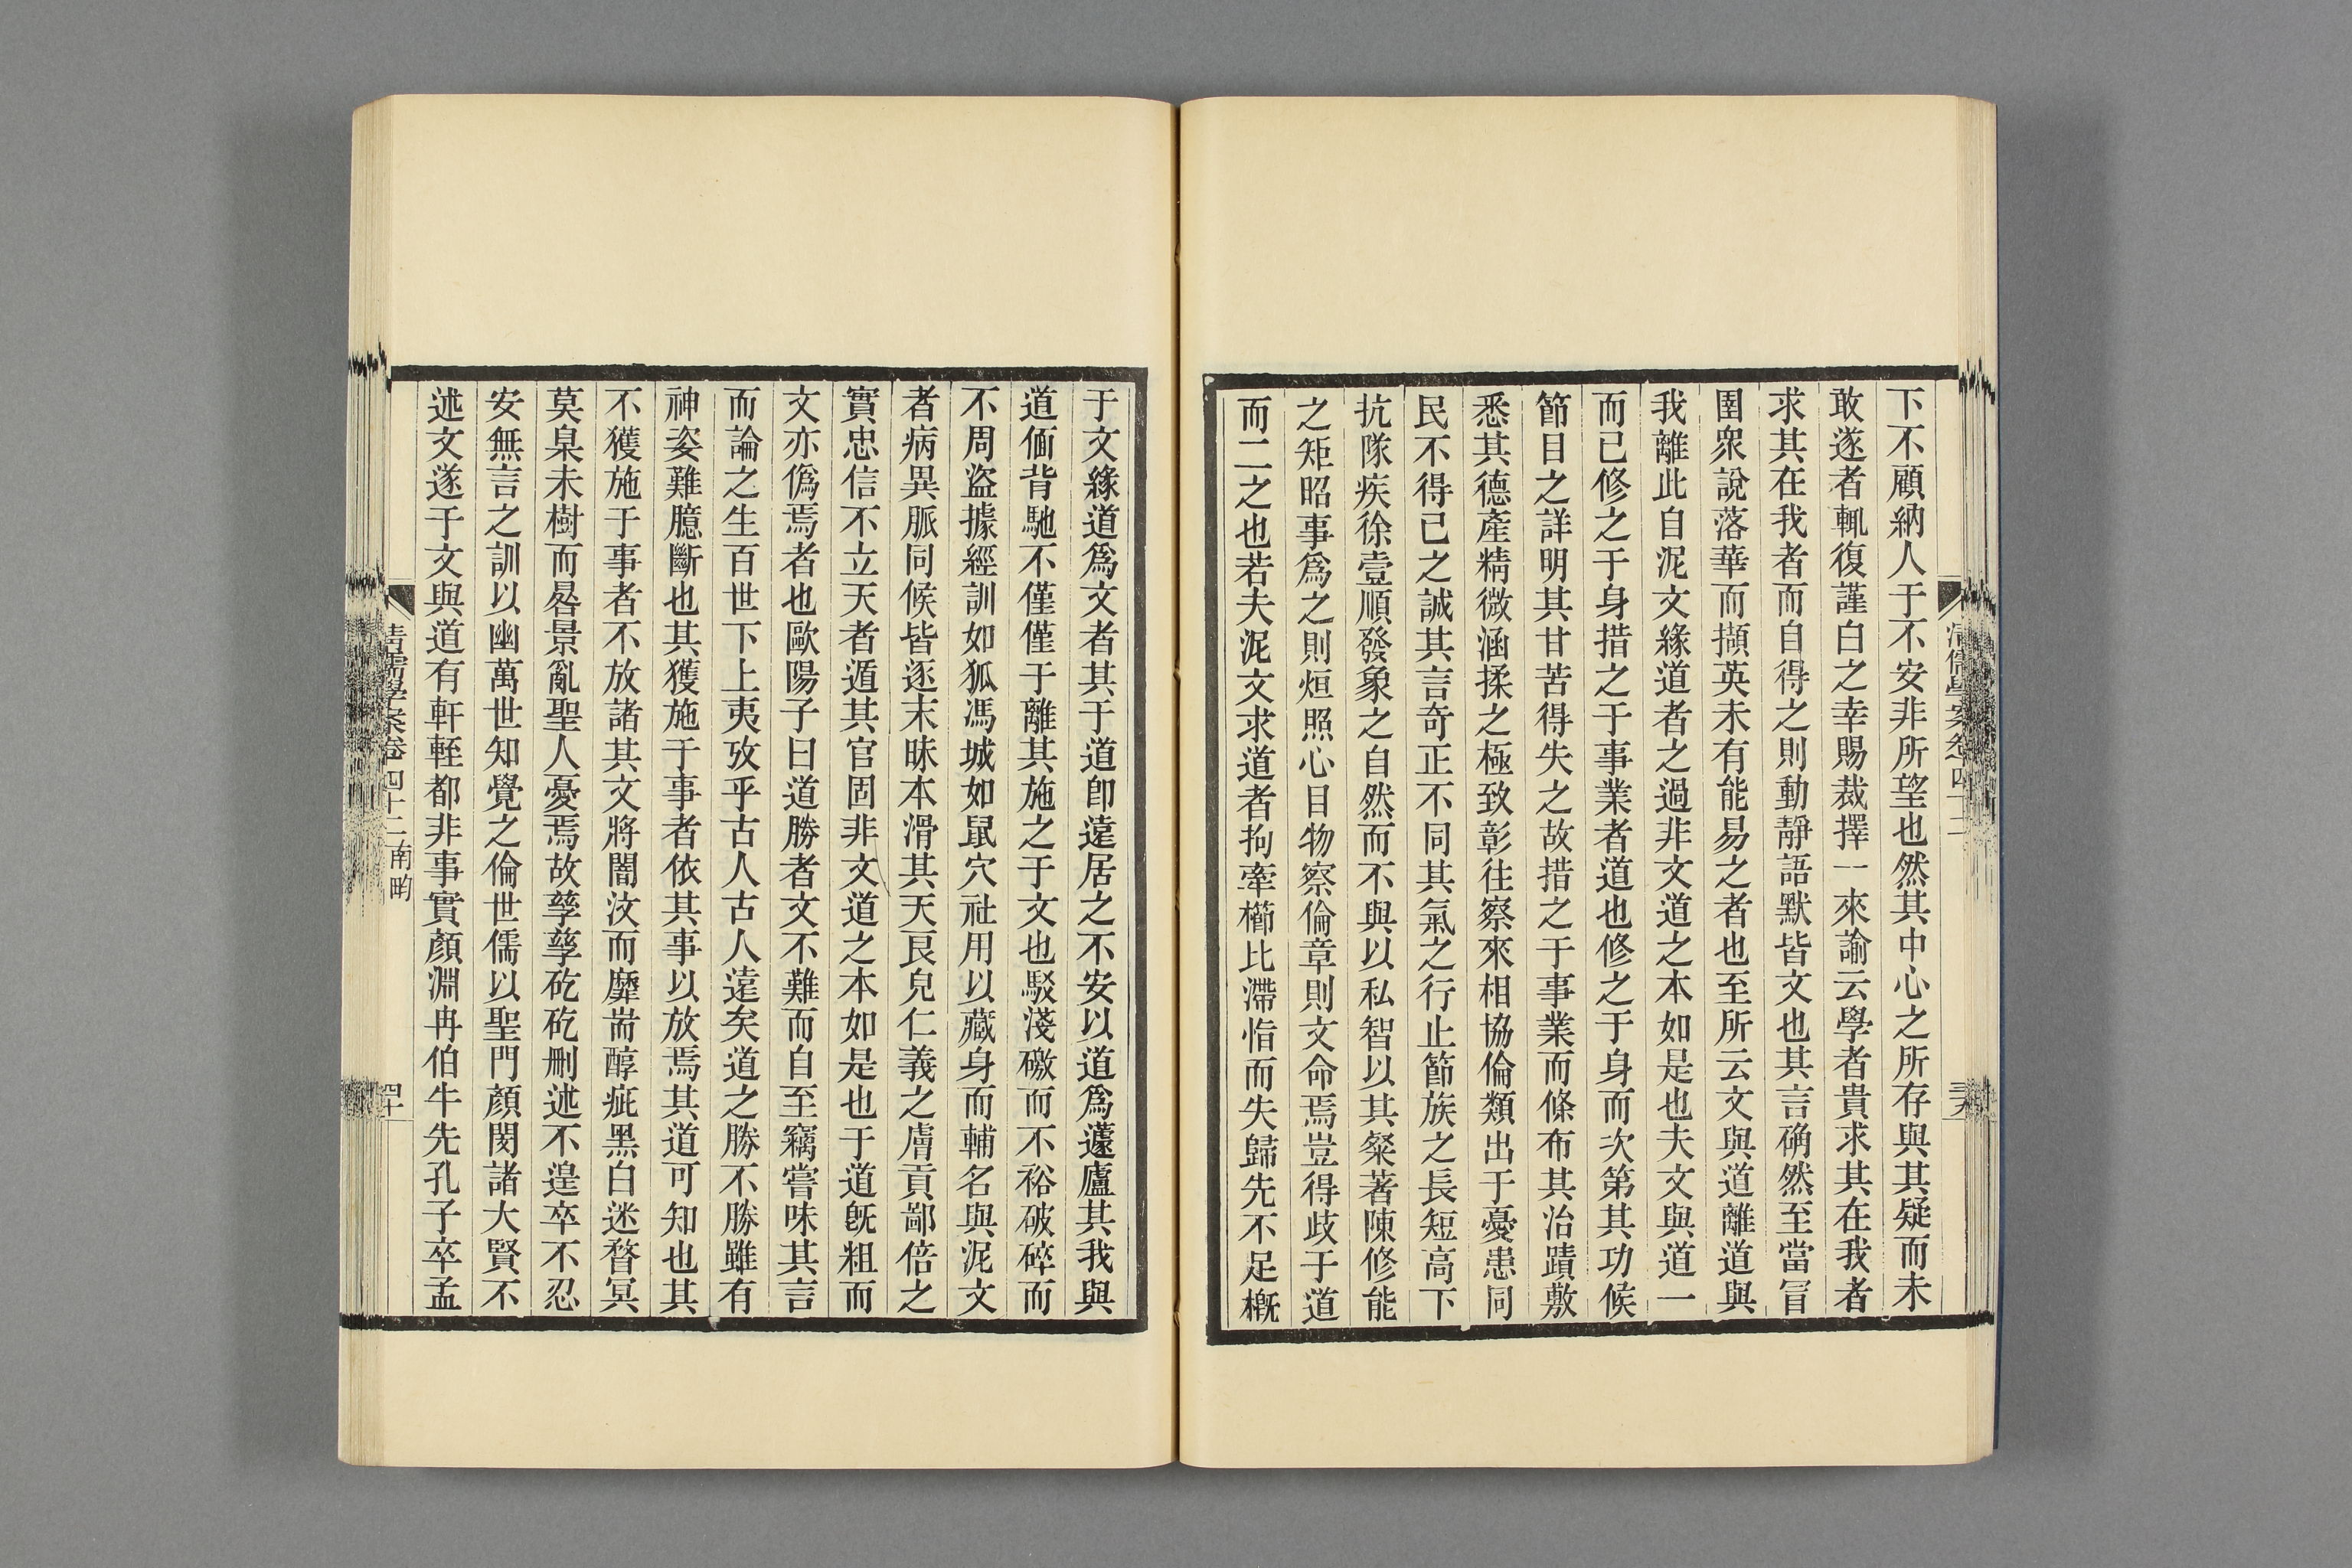 清儒學案卷四十二
下不顧納人于不安非所望也然其中心之所存與其疑而未
敢遂者輒復謹白之幸賜裁擇一來諭云學者貴求其在我者
求其在我者而自得之則動靜語默皆文也其言确然至當冒
圍衆說落華而擷英未有能易之者也至所云文與道離道與
我離此自泥文緣道者之過非文道之本如是也夫文與道一
而已修之于身措之于事業者道也修之于身而次第其功候
節目之詳明其甘苦得失之故措之于事業而條布其治蹟敷
悉其德產精微涵揉之極致彰往察來相協倫類出于憂患同
民不得已之誠其言奇正不同其氣之行止節族之長短高下
抗隊疾徐壹順發象之自然而不與以私智以其粲著陳修能
之矩昭事爲之則烜照心目物察倫章則文命焉豈得歧于道
而二之也若夫泥文求道者拘牽櫛比滯悎而失歸先不足槪
于文緣道爲文者其于道卽遠居之不安以道爲蘧廬其我與
道偭背馳不僅僅于離其施之于文也駁淺礉而不裕破碎而
不周盜據經訓如狐馮城如鼠穴社用以藏身而輔名與泥文
者病異脈同候皆逐末昧本滑其天良皃仁義之膚貢鄙倍之
實忠信不立天者遁其官固非文道之本如是也于道旣粗而
文亦僞焉者也歐陽子曰道勝者文不難而自至竊嘗味其言
而論之生百世下上夷攷乎古人古人遠矣道之勝不勝雖有
神姿難臆斷也其獲施于事者依其事以放焉其道可知也其
不獲施于事者不放諸其文將闇汶而靡耑醇疵黑白迷瞀冥
莫臬未樹而晷景亂聖人憂焉故孳孳矻矻刪述不遑卒不忍
安無言之訓以幽萬世知覺之倫世儒以聖門顏閔諸大賢不
述文遂于文與道有軒輊都非事實顏淵冉伯牛先孔子卒孟
清儒學案卷四十二 南畇
四十